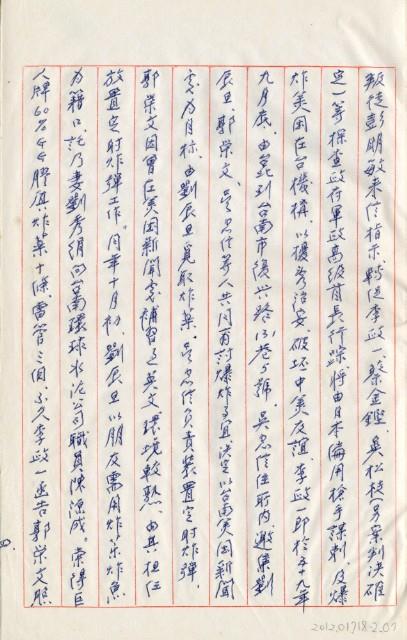 叛徒彭明敏來信指示，轉從李政一、蔡金鏗、吳松枝（另案判決確
定）等探查政府軍政高級首長行踪，將由日本偷用槍手謀刺，及爆
炸美國在台機構，以擾秀治安，破坏中美友誼，李政一即於五十九年
九月底，由葛到台南市復兴路13巷5號，吳忠信住所內，邀集劉
辰旦、郭榮文、吳忠信等人共同商討爆炸事宜，決定以台南美國新聞
處为目标，由劉辰旦覓取炸药，吳忠信負責裝置定时炸弹，
郭榮文因曾在美国新聞處補習過英文环境較熟，由其担任
放置定时炸彈工作。同年十月初，劉辰旦以朋友需用炸药炸魚
为籍口，託乃妻劉秀絹向台南環球水泥公司職員陳湶成，索得巨
人牌60%GG膠質炸药十條，雷管三個，不久李政一函告郭榮文照
2012.017.18-2.07